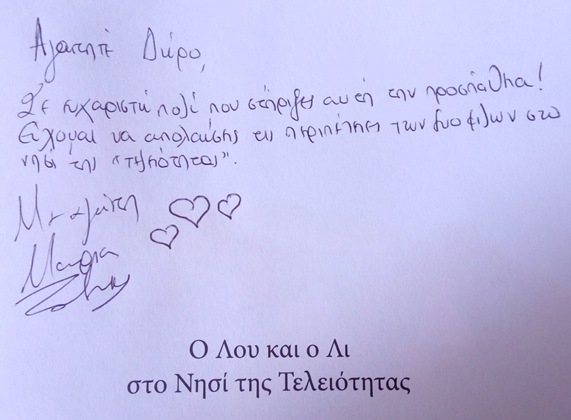 Αγαπητέ Δώρο,
Σε ευχαριστώ πολύ που στήριξες αυτή την προσπάθεια!
Εύχομαι να απολαύσης τις περιπέτειες των δυο φίλων στο
νησί της "τελειότητας".
Με αγάπη
Μαρία
Ο Λου και ο Λι
στο Νησί της Τελειότητας